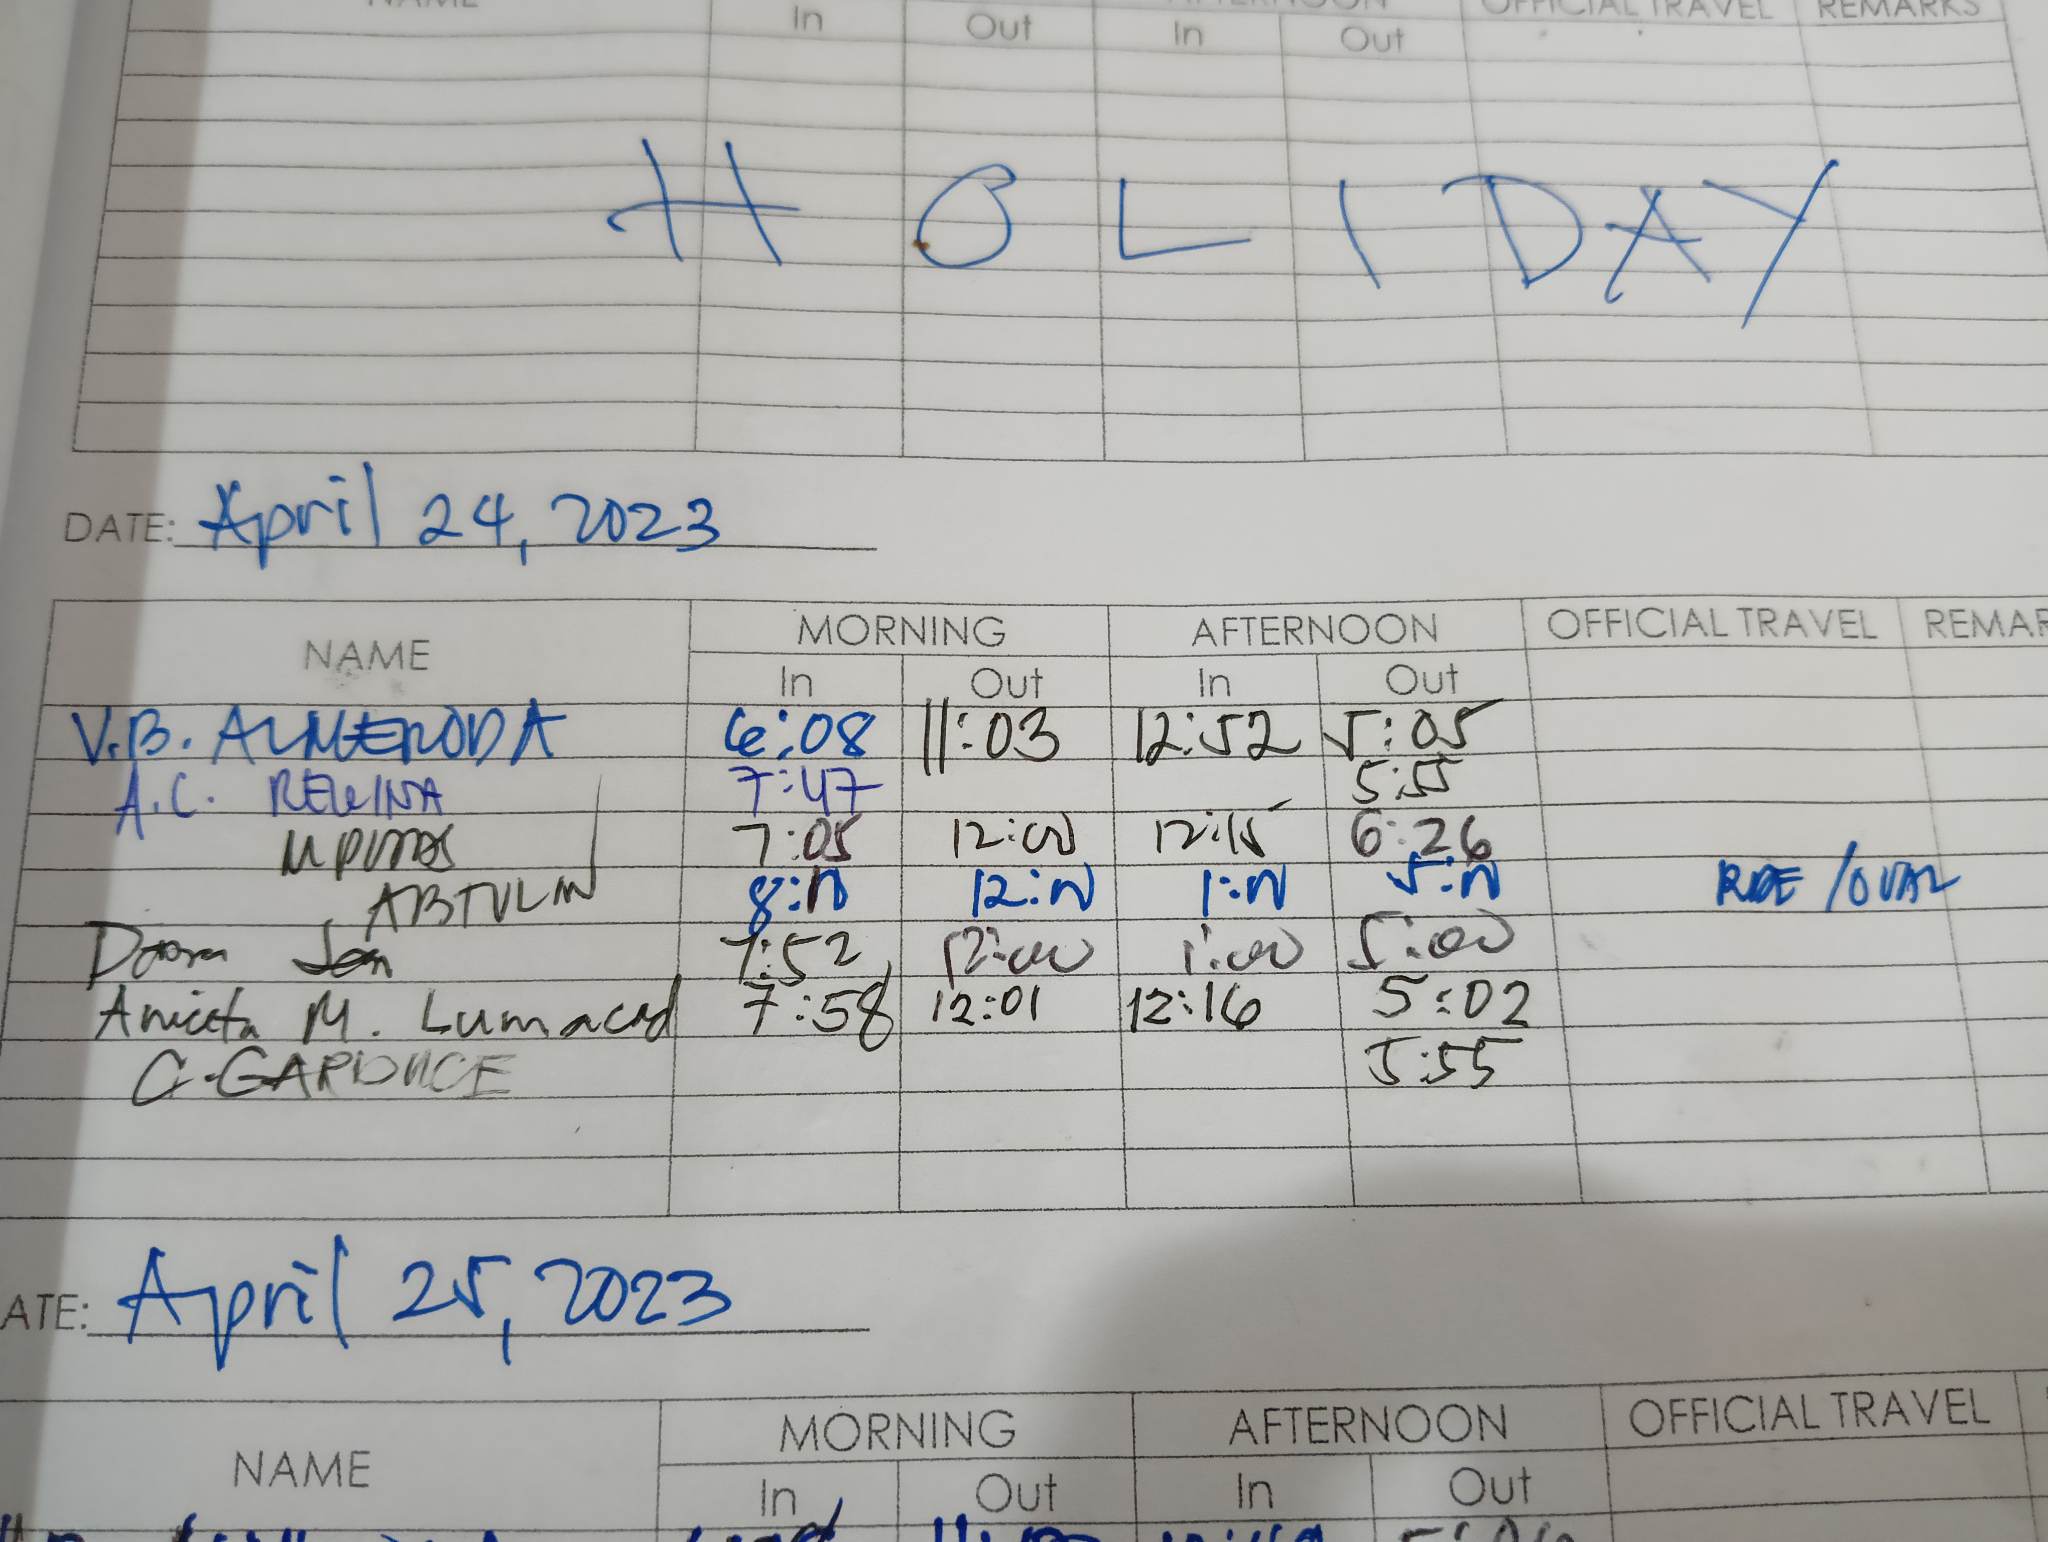 NAME In Out In Out OFFICIAL TRAVEL REMARKS
HOLIDAY
DATE: April 24, 2023
NAME MORNING AFTERNOON OFFICIAL TRAVEL REMAR
In Out In Out
V.B. ALMERODA 6:08 11:03 12:52 5:05
A.C. 7:47 5:55
7:05 12:00 12:15 6:26
8:00 12:00 1:00 5:00 RIDE /OVAL
7:52 12:00 1:00 5:00
Aniceta M. Lumacad 7:58 12:01 12:16 5:02
C. 5:55
ATE: April 25, 2023
NAME MORNING AFTERNOON OFFICIAL TRAVEL
In Out In Out